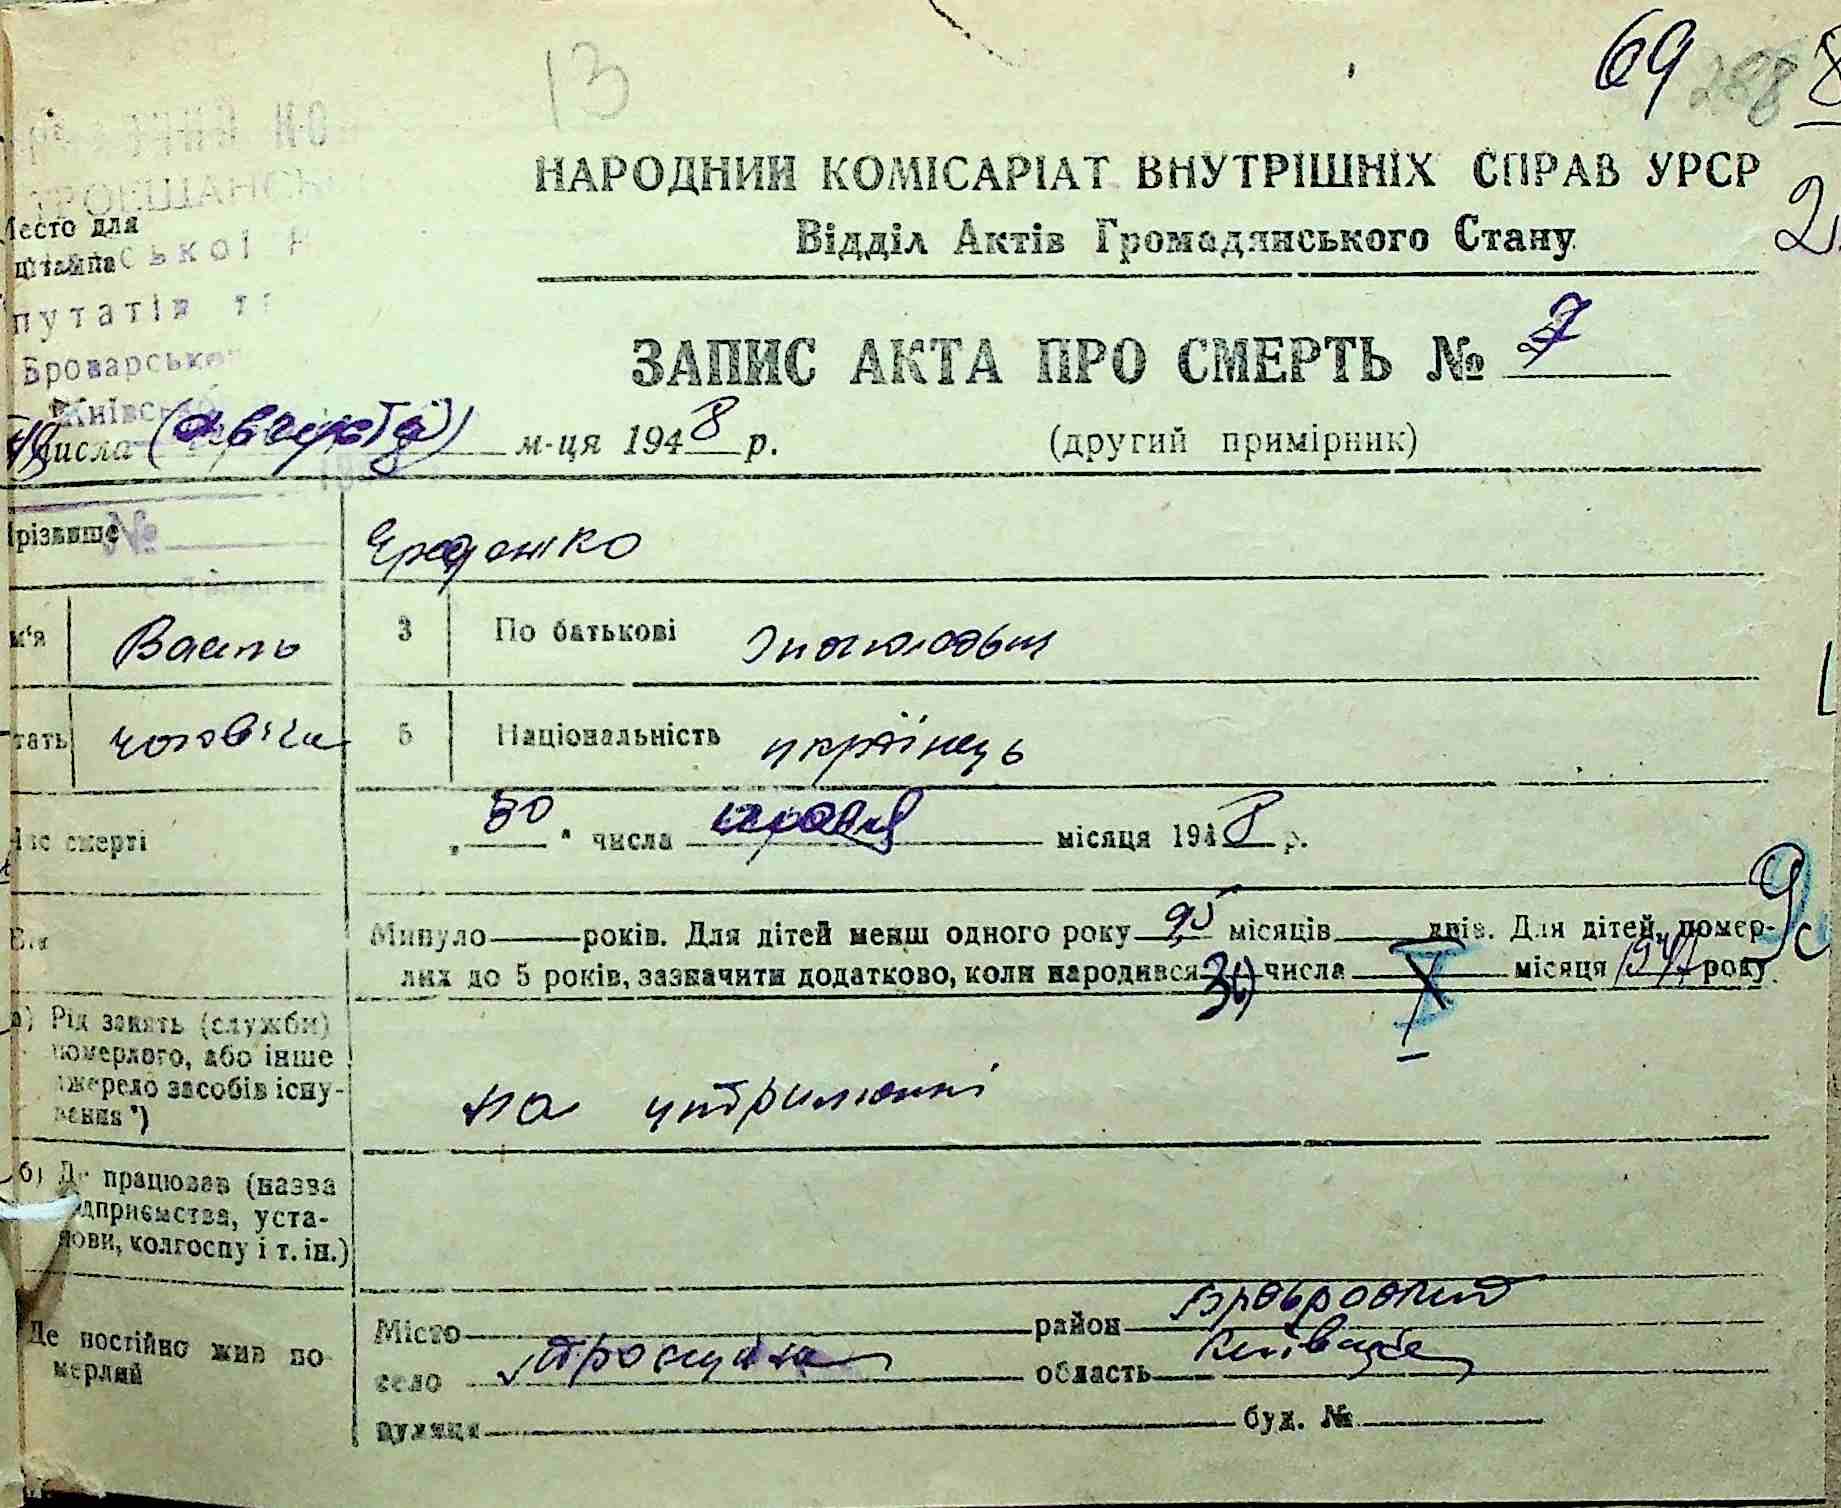 13
69 288
НАРОДНИЙ КОМІСАРІАТ ВНУТРІШНІХ СПРАВ УРСР
Відділ Актів Громадянського Стану
Место для
штампа
ської
путатів
Броварськ
Київськ
ЗАПИС АКТА ПРО СМЕРТЬ № 7
числа (августа) м-ця 1948 р. (другий примірник)
різвище
№
м'я Василь 3 По батькові
тать чоловіча 5 Національність українець
час смерті „30" числа травня місяця 1948 р.
Вік Минуло років. Для дітей менш одного року місяців днів. Для дітей, помер-
лих до 5 років, зазначити додатково, коли народився 30 числа X місяця 1947 року
а) Рід занять (служби)
померлого, або інше
джерело засобів існу-
вання*)
на утриманні
б) Де працював (назва
підприємства, уста-
нови, колгоспу і т. ін.)
Де постійно жив по
мерлий
Місто район Броварський
село Троєщина область Київська
вулиця буд. №